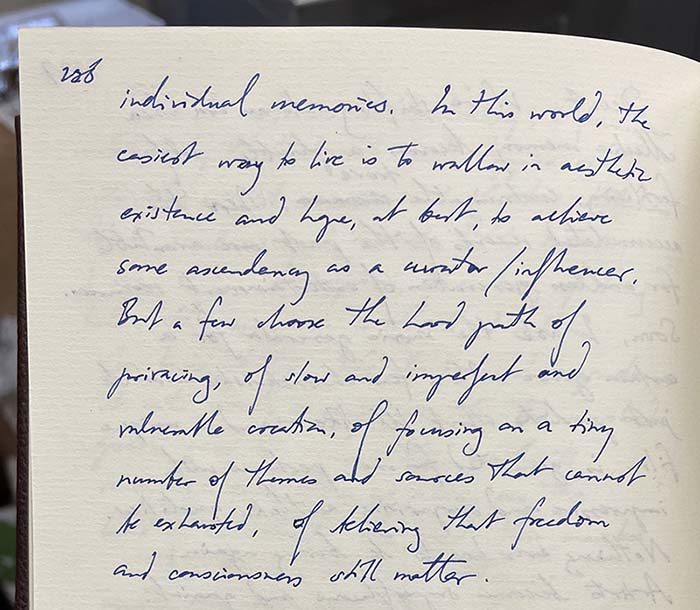 228
individual memories. In this world, the
easiest way to live is to wallow in aesthetic
existence and hope, at best, to achieve
some ascendency as a curator/influencer.
But a few choose the hard path of
privacing, of slow and imperfect and
vulnerable creation, of focusing on a tiny
number of themes and sources that cannot
be exhausted, of believing that freedom
and consciousness still matter.